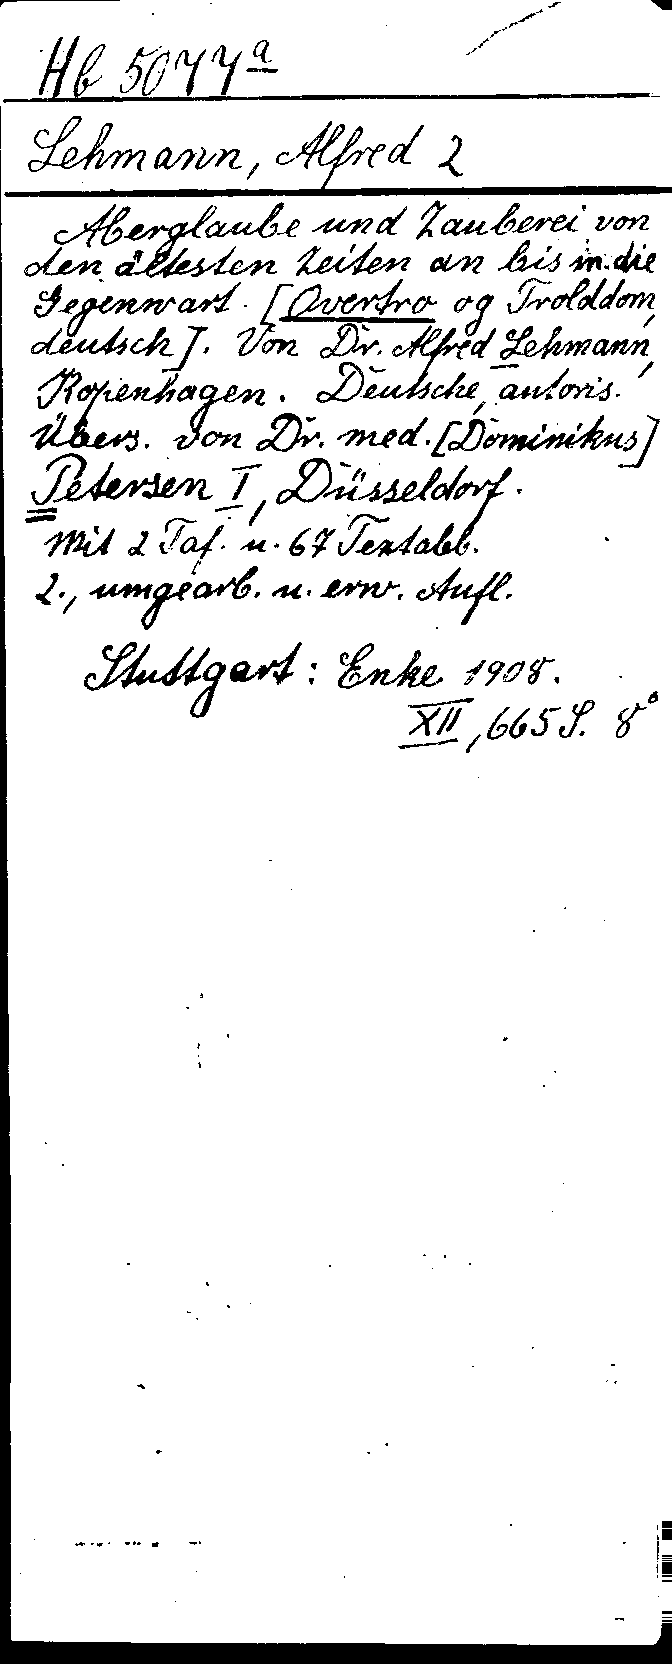 Hb 5077ª
Lehmann, Alfred 2
Aberglaube und Zauberei von
den ältesten Zeiten an bis in die
Gegenwart. [Overtro og Trolddom,
deutsch]. Von Dr. Alfred Lehmann,
Kopenhagen. Deutsche, autoris.
Übers. von Dr. med. [Dominikus]
Petersen I, Düsseldorf.
Mit 2 Taf. u. 67 Textabb.
2., umgearb. u. erw. Aufl.
Stuttgart: Enke 1908.
XII, 665 S. 8°